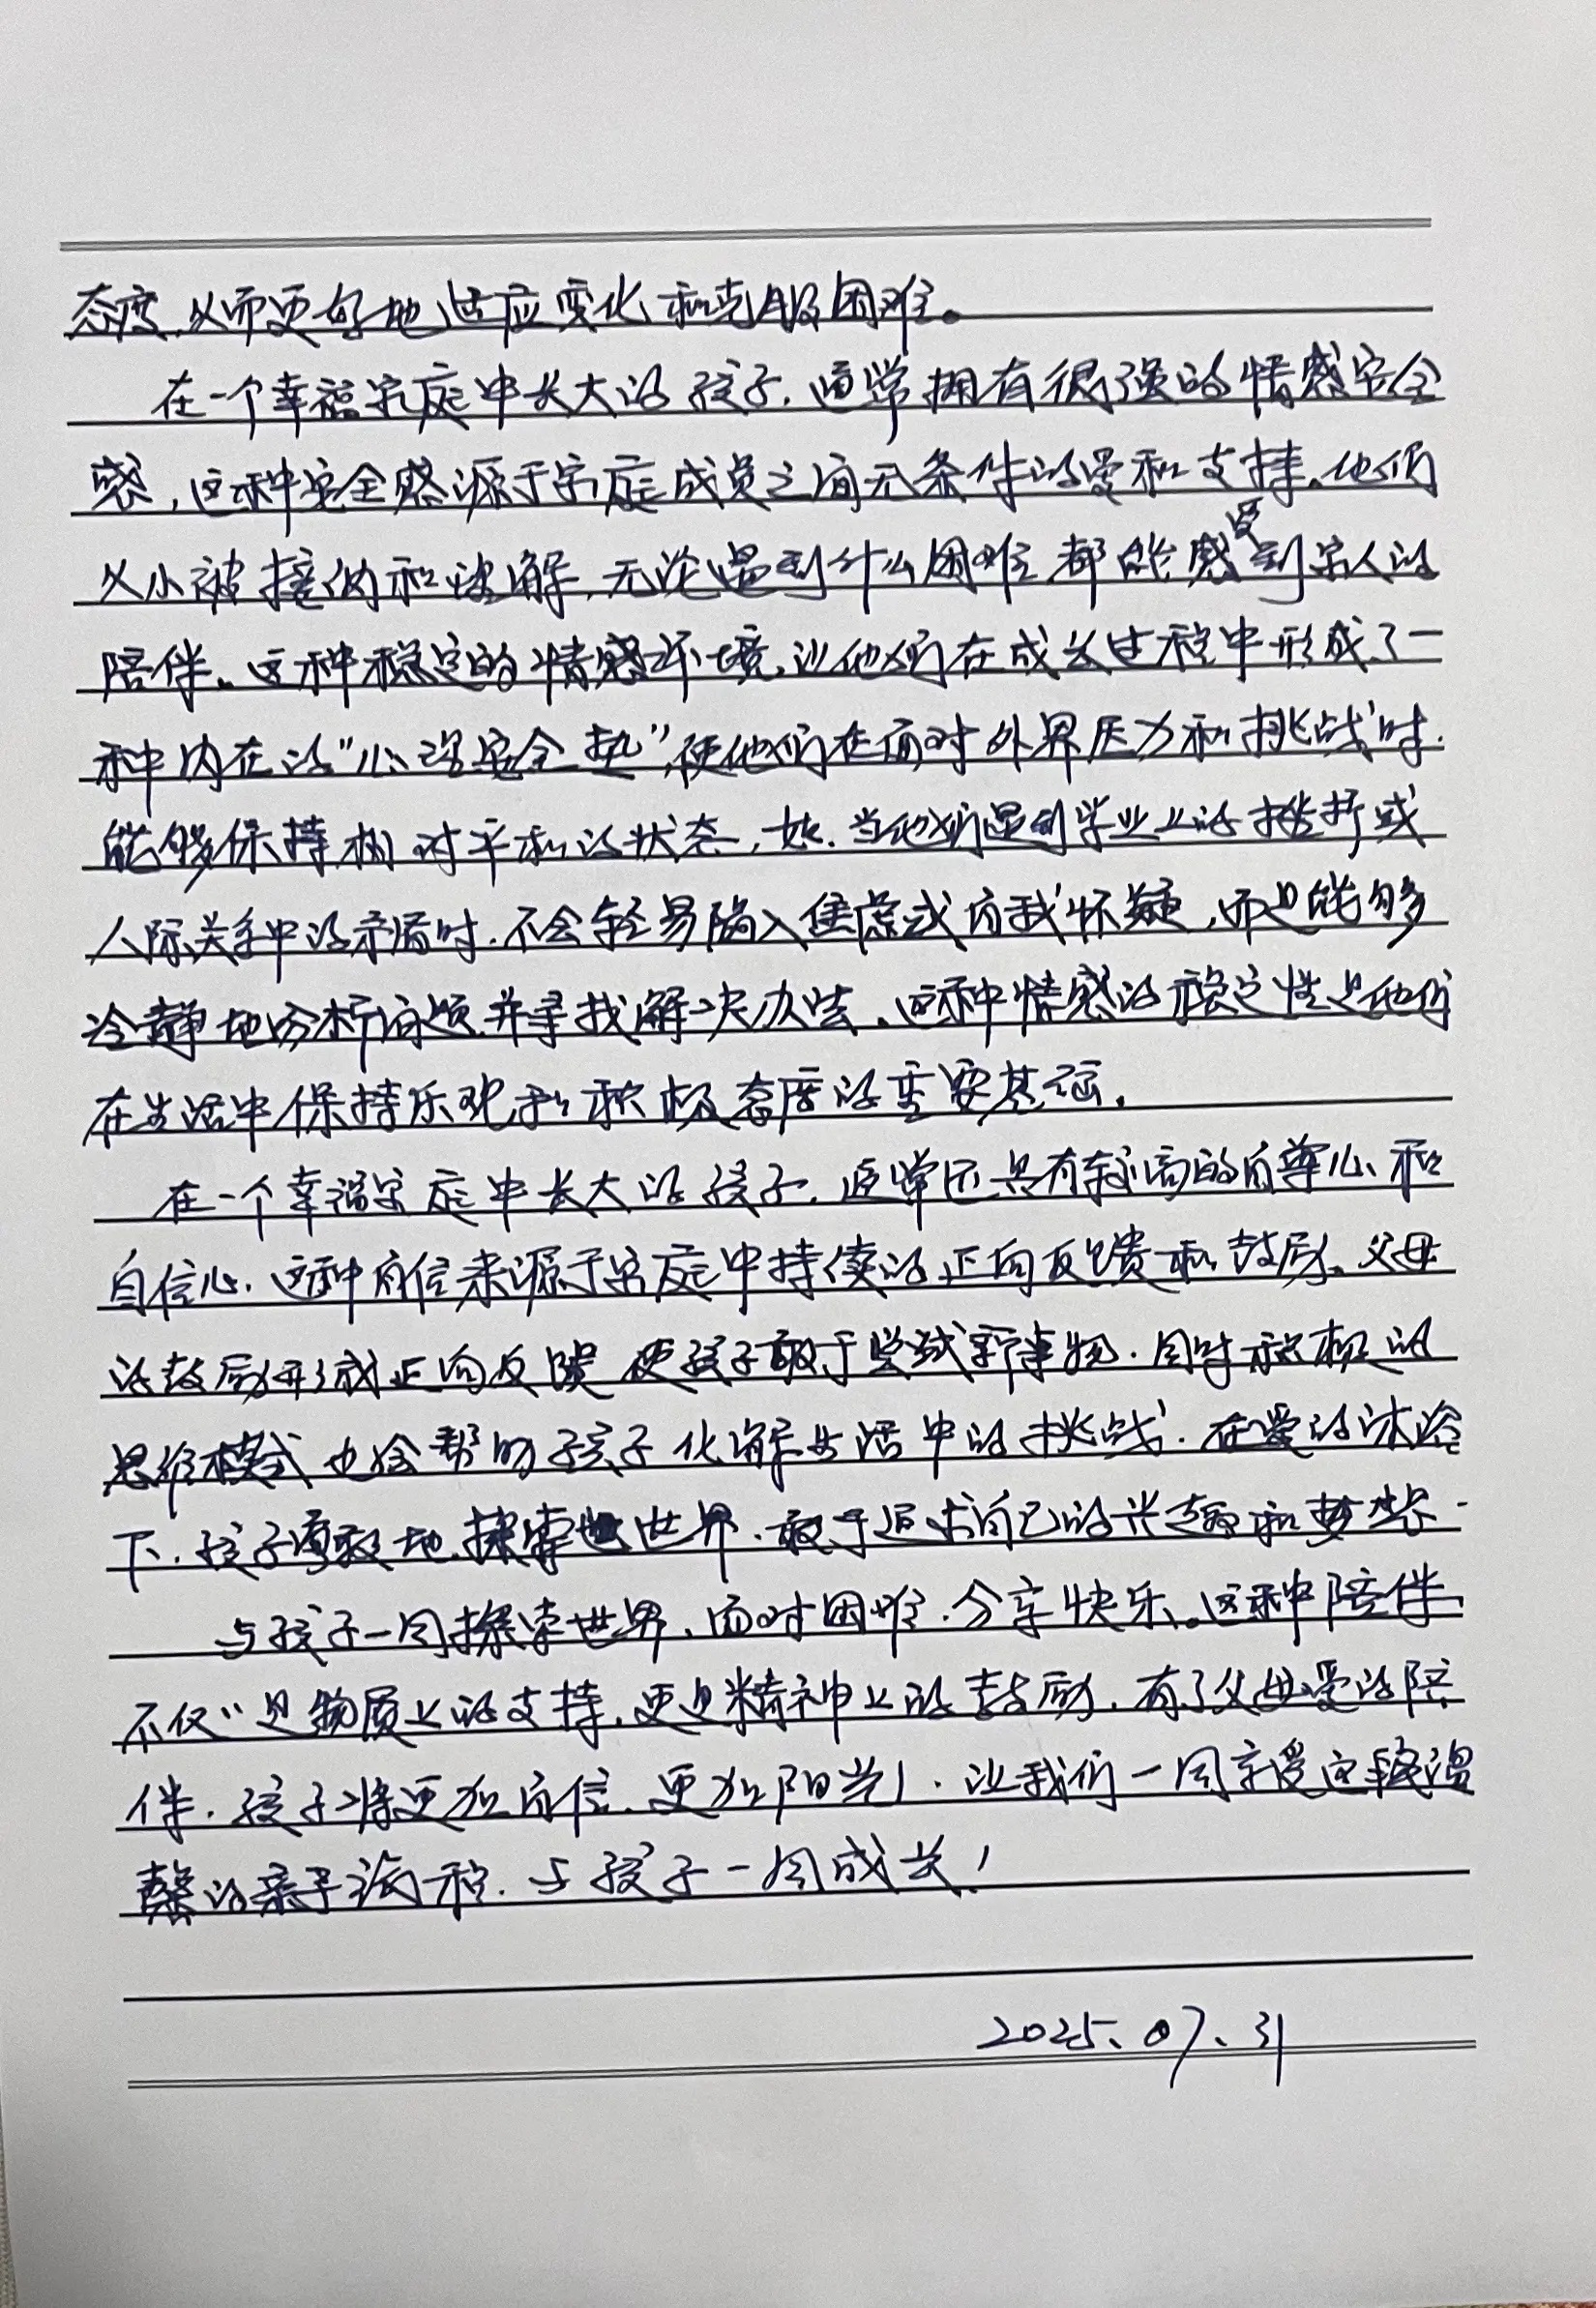 态度，从而更好地适应变化和克服困难。
在一个幸福家庭中长大的孩子，通常拥有很强的情感安全
感，这种安全感源于家庭成员之间无条件的爱和支持。他们
从小被接纳和理解，无论遇到什么困难都能感受到家人的
陪伴。这种稳定的情感环境，让他们在成长过程中形成了一
种内在的“心理安全垫”，使他们在面对外界压力和挑战时，
能够保持相对平和的状态，如，当他们遇到学业上的挫折或
人际关系中的矛盾时，不会轻易陷入焦虑或自我怀疑，而是能够
冷静地分析问题，并寻找解决办法，这种情感的稳定性是他们
在生活中保持乐观和积极态度的重要基础。
在一个幸福家庭中长大的孩子，通常还具有较高的自尊心和
自信心，这种自信来源于家庭中持续的正向反馈和鼓励。父母
的鼓励形成正向反馈，使孩子敢于尝试新事物，同时积极的
思维模式也会帮助孩子化解生活中的挑战，在爱的沐浴
下，孩子勇敢地探索世界，敢于追求自己的兴趣和梦想。
与孩子一同探索世界，面对困难，分享快乐。这种陪伴，
不仅是物质上的支持，更是精神上的鼓励，有了父母爱的陪
伴，孩子将更加自信，更加阳光！让我们一同享受这段温
馨的亲子旅程，与孩子一同成长！
2025.07.31